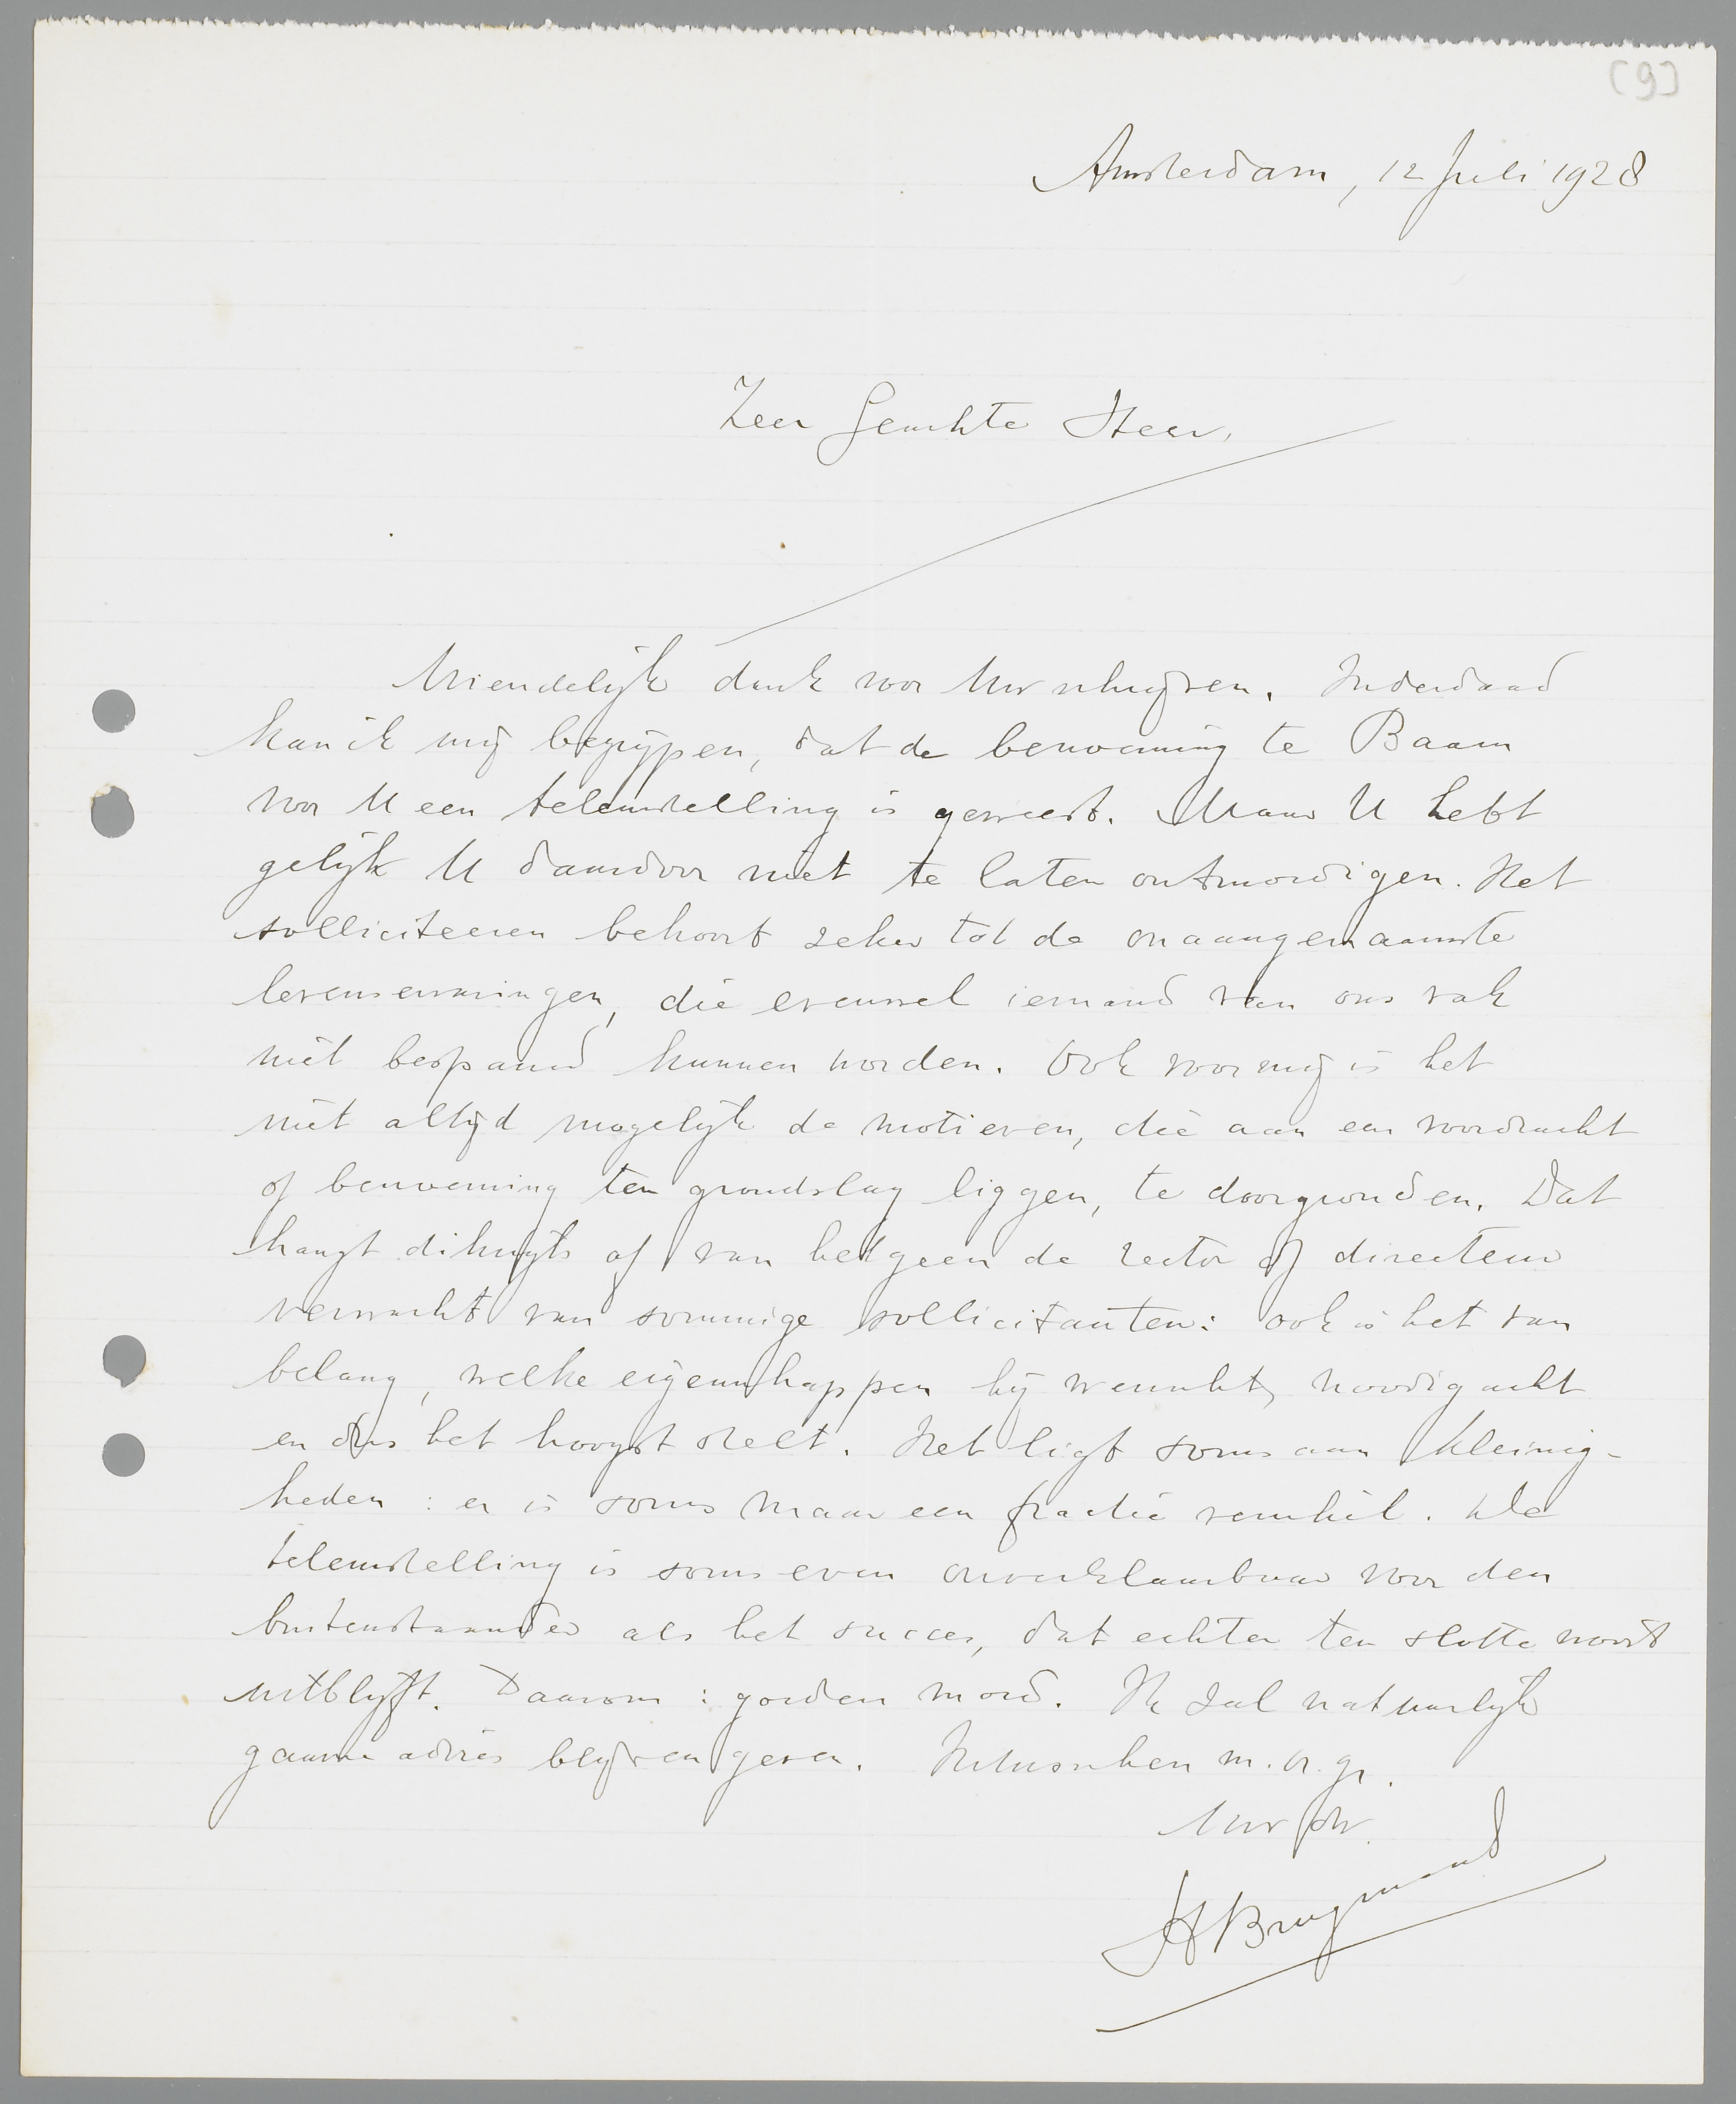 [9]
Amsterdam, 12 Juli 1928
Zeer Geachte Heer,
Vriendelijk dank voor Uw schrijven. Inderdaad
kan ik mij begrijpen, dat de benoeming te Baarn
voor U een teleurstelling is geweest. Maar U hebt
gelijk U daardoor niet te laten ontmoedigen. Het
solliciteeren behoort zeker tot de onaangenaamste
levenservaringen, die evenwel iemand van ons vak
niet bespaard kunnen worden. Ook voor mij is het
niet altijd mogelijk de motieven, die aan een voordracht
of benoeming ten grondslag liggen, te doorgronden. Dat
hangt dikwijls af van hetgeen de rector of directeur
verwacht van sommige sollicitanten: ook is het van
belang, welke eigenschappen hij wenscht, noodig acht
en dus het hoogst stelt. Het ligt soms aan kleinig-
heden: er is soms maar een fractie verschil. De
teleurstelling is soms even onverklaarbaar voor den
buitenstaander als het succes, dat echter ten slotte nooit
uitblijft. Daarom: goeden moed. Ik zal natuurlijk
gaarne advies blijven geven. Intusschen m. vr. gr.
Uw dw.
HBrugmans